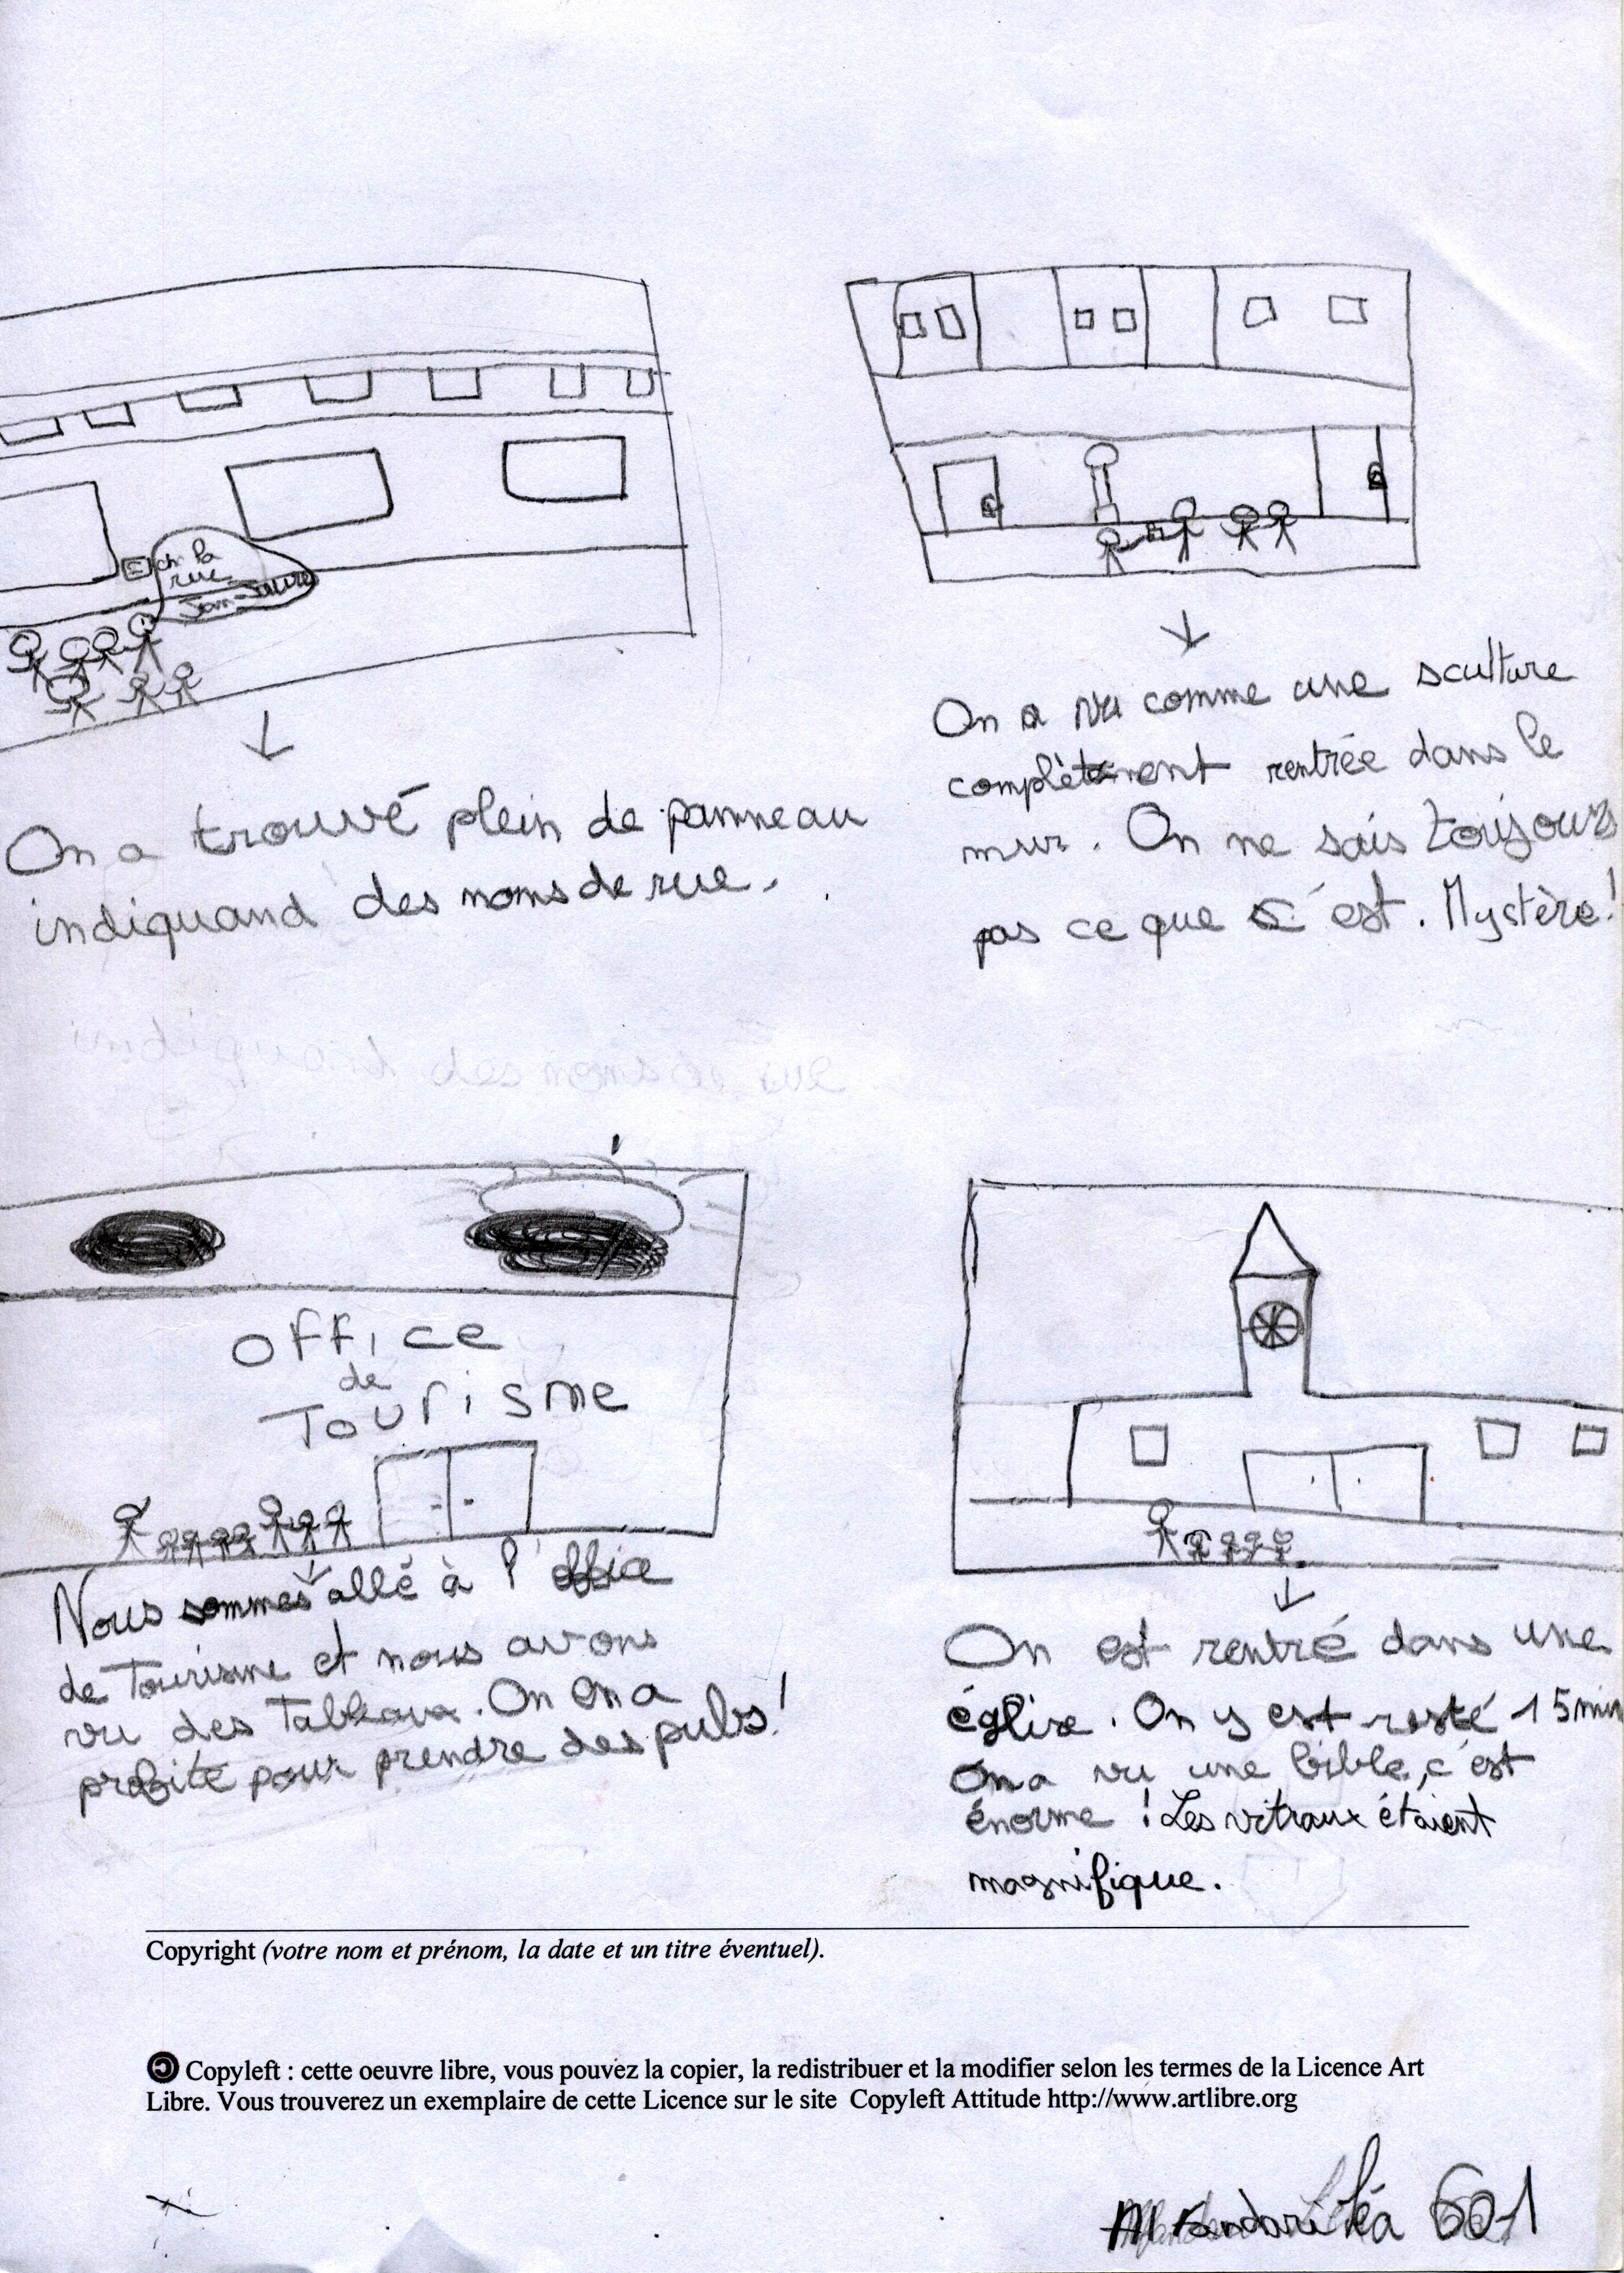 la
rue
On a trouvé plein de panneau
indiquand des noms de rue.
On a vu comme une sculture
complètement rentrée dans le
mur. On ne sais toujours
pas ce que c'est. Mystère!
indiquand des noms de rue
office
de
Tourisme
Nous sommes allé à l'office
de Tourisme et nous avons
vu des Tableaux. On en a
profité pour prendre des pubs!
On est rentré dans une
église. On y est resté 15 min
On a vu une bible, c'est
énorme ! Les vitraux étaient
magnifique.
Copyright (votre nom et prénom, la date et un titre éventuel).
Copyleft : cette oeuvre libre, vous pouvez la copier, la redistribuer et la modifier selon les termes de la Licence Art
Libre. Vous trouverez un exemplaire de cette Licence sur le site Copyleft Attitude http://www.artlibre.org
Léa 601